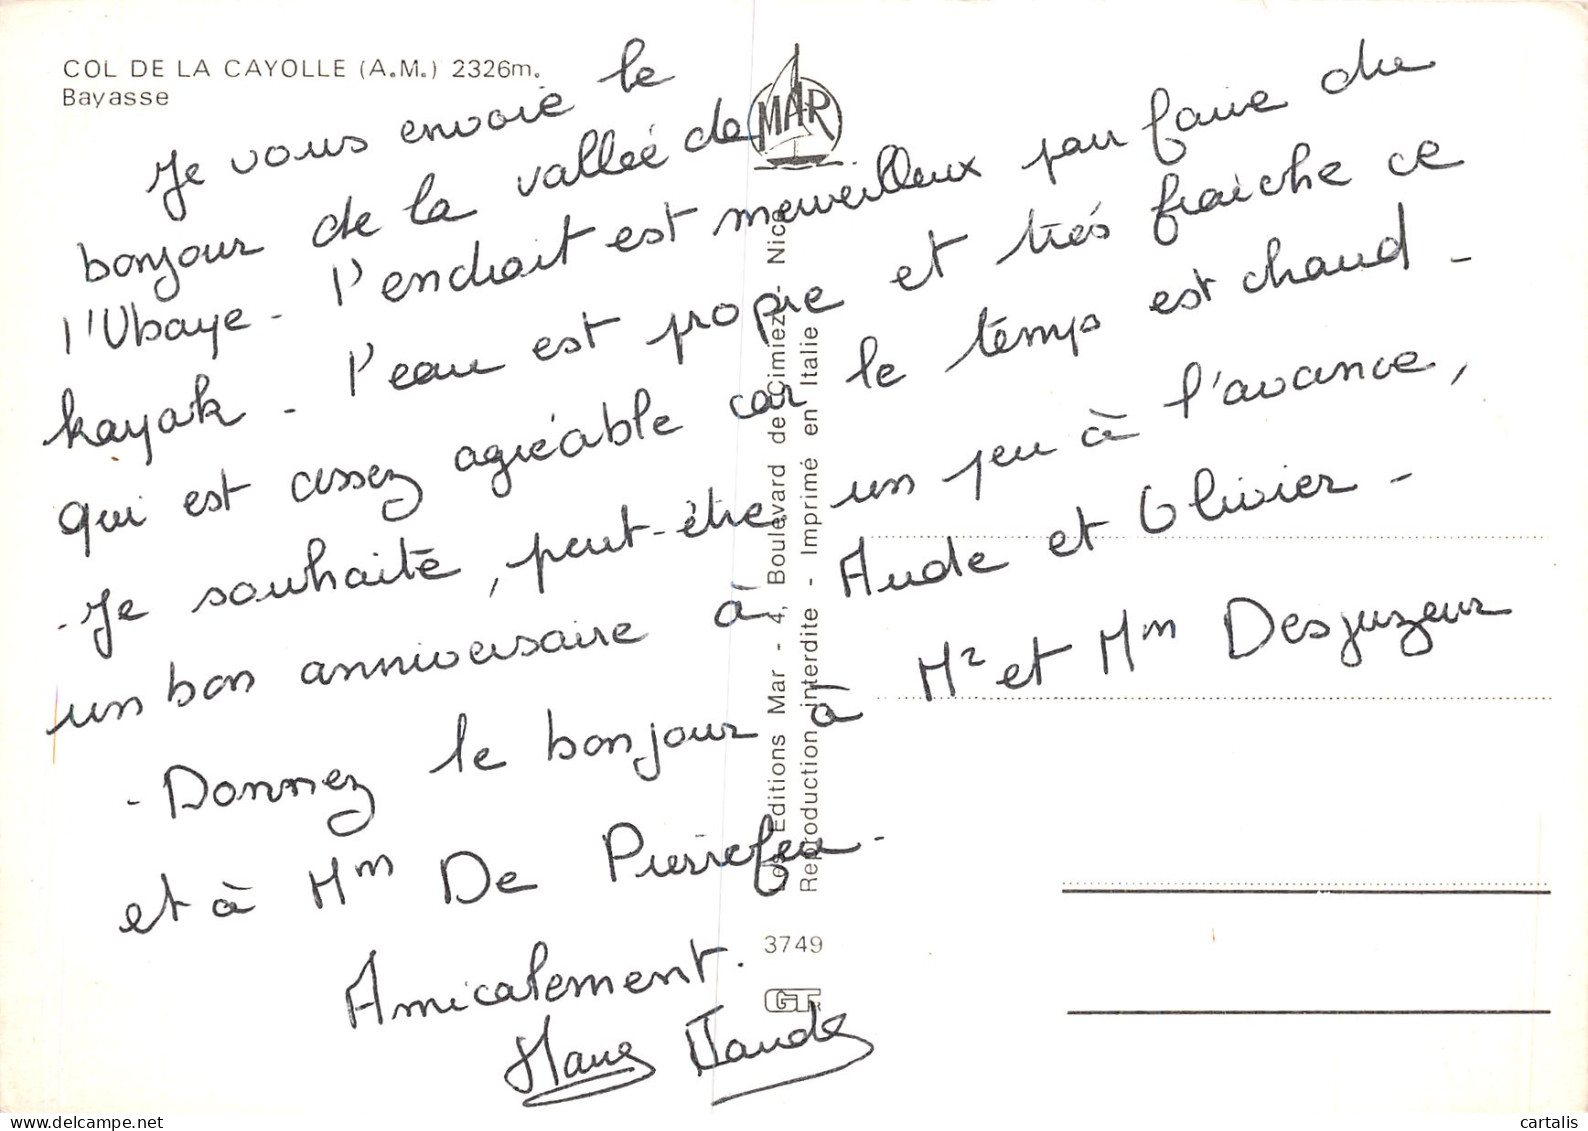 COL DE LA CAYOLLE (A.M.) 2326m.
Bayasse
MAR
Je vous envoie le
bonjour de la vallée de
l'Ubaye - l'endroit est merveilleux pour faire du
kayak - l'eau est propre et très fraîche ce
qui est assez agréable car le temps est chaud -
- Je souhaite, peut-être un peu à l'avance,
un bon anniversaire à Aude et Olivier -
- Donnez le bonjour à Mr et Mm Desjuzeur
et à Mm De Pierrefeu -
Amicalement.
Les Editions Mar - 4, Boulevard de Cimiez - Nice
Reproduction interdite - Imprimé en Italie
3749
GT
cartalis
delcampe.net